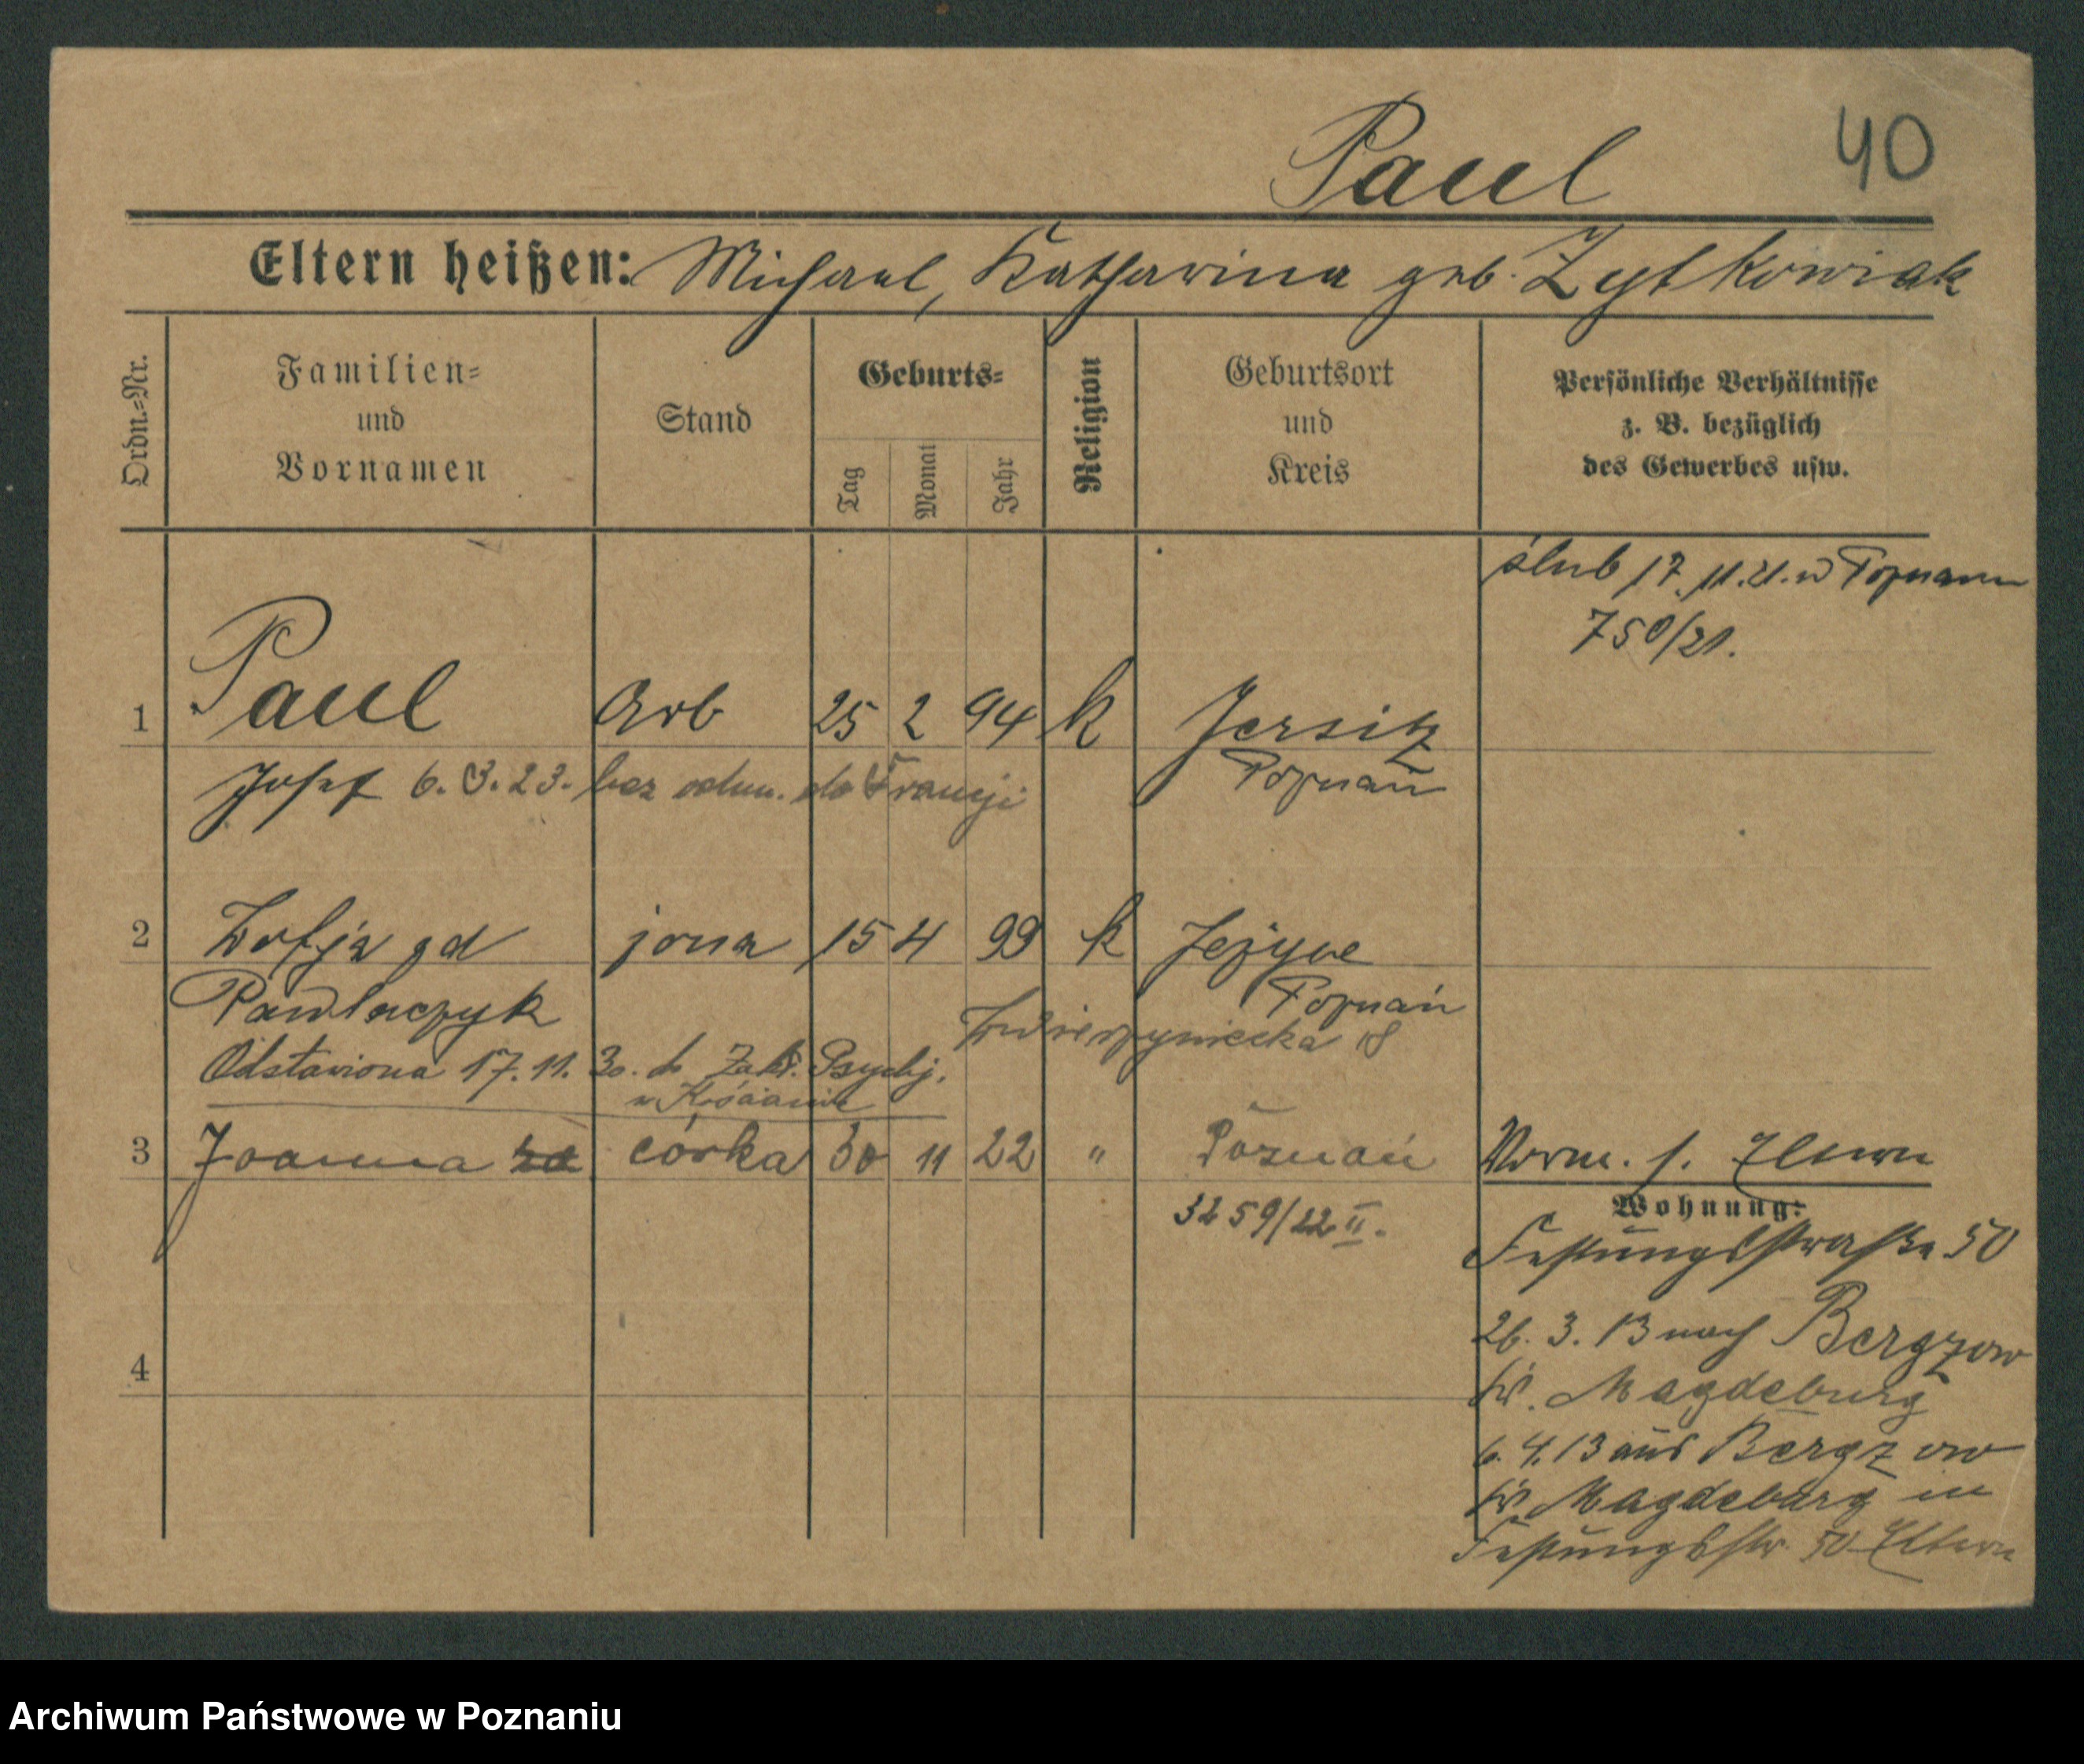 Paul 40
Eltern heißen: Michael, Katharina geb. Zytkowiak
Ordn.=Nr.
Familien=
und
Vornamen
Stand
Geburts=
Tag
Monat
Jahr
Religion
Geburtsort
und
Kreis
Persönliche Verhältnisse
z. B. bezüglich
des Gewerbes usw.
ślub 17.11.21. w Poznaniu
750/21.
1 Paul Arb 25 2 94 k Jersitz
Josef 6.3.23. bez odm. do Francji Poznań
2 Zofja gd żona 15 4 99 k Jeżyce
Pawlaczyk Poznań
Zwierzyniecka 18
Odstawiona 17.11.30. do Zakł. Psychj.
w Kościanie
3 Joanna córka 30 11 22 " Poznań Vorm. s. Eltern
3259/22 II.
Wohnung:
Festungsstraße 50
26.3.13 nach Bergzow
Kr. Magdeburg
4
6.4.13 aus Bergzow
Kr. Magdeburg in
Festungsstr. 50 Eltern
Archiwum Państwowe w Poznaniu